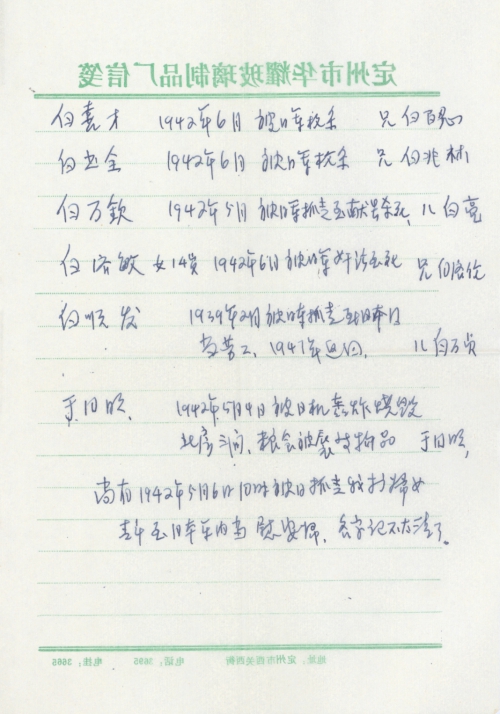 定州市华耀玻璃制品厂信笺
白喜才 1942年6月 被日军枪杀 兄 白百思
白 全 1942年6月 被日军枪杀 兄 白兆林
白万钦 1942年5月 被日军抓走至献县杀死, 儿 白亮
白洛敏 女14岁 1942年6月 被日军奸污至死 兄 白洛伦
白顺发 1939年2月 被日军抓走至日本
当劳工, 1947年返回, 儿 白万贞
于旧明, 1942年5月4日 被日机轰炸烧毁
北房三间、粮食被 物品 于旧明,
尚有1942年5月6日10时 被日抓走我村妇女
去 至日本军内当慰安妇, 名字记不清了。
地址: 定州市西关西街 电话: 3695 电挂: 3665